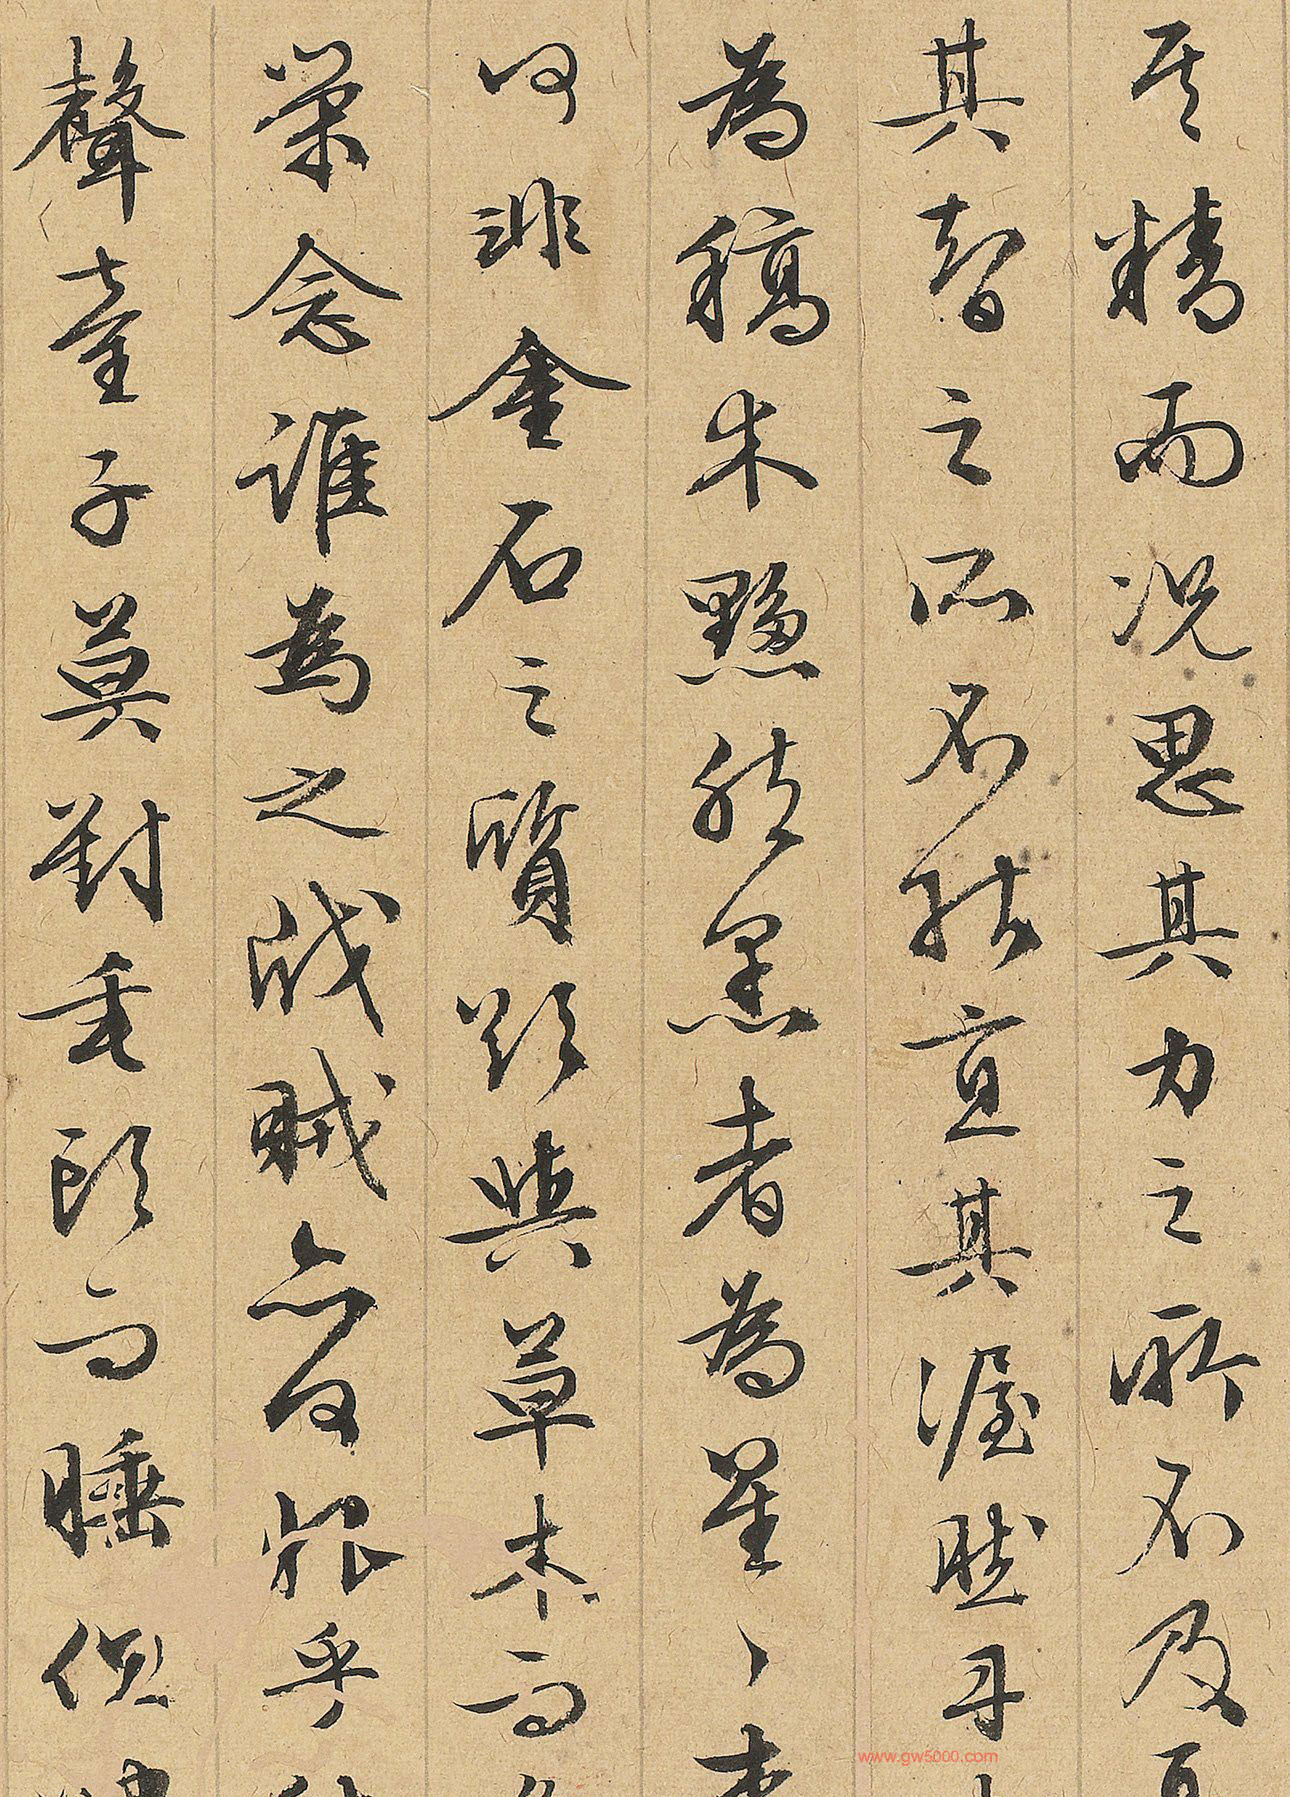 其精而况思其力之所不及憂
其智之所不能宜其渥然丹
為槁木黟然黑者為星〻
何非金石之質欲與草木而
榮念誰為之戕賊亦何恨乎
聲童子莫對垂頭而睡但
www.gw5000.com